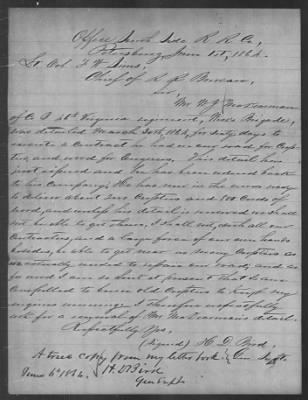 Office South Side R. R. Co,
Petersburg, June 1st, 1864.
Lt. Col. F. W. Sims,
Chief of R. R. Bureau,
Mr W. J.
of Co Virginia regiment, Brigade,
was detailed March 30th 1864, for sixty days to
execute a contract he had on my road for Cross
ties and wood for Engines. His detail has
just expired and he has been ordered back
to his Company. He has now in the woods ready
to deliver about 200 Crossties and 800 Cords of
wood, and unless his detail is renewed I shall
not be able to get them. I shall not, with all our
Contractors, and a large force of our own hands
besides, be able to get near as many Crossties as
we actually need to repair our road, and as
for wood I am so short at present that I am
Compelled to burn old Crossties to keep my
engines running. I therefore respectfully
ask for a renewal of Mr detail.
Respectfully Yrs,
(Signed) H. D. Bird
A true copy from my letter book Gen Supt.
June 6th 1864. H. D. Bird
Gen Supt